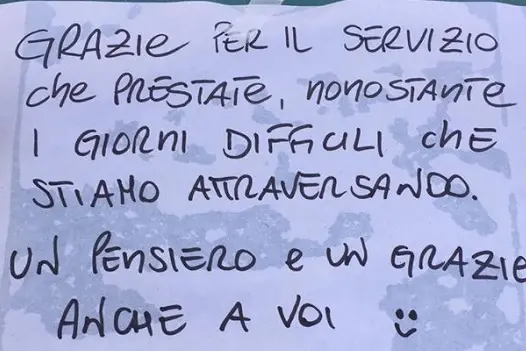 GRAZIE PER IL SERVIZIO
che PRESTATE, NONOSTANTE
I GIORNI DIFFICILI CHE
STIAMO ATTRAVERSANDO.
UN PENSIERO e UN GRAZIE
ANCHE A VOI